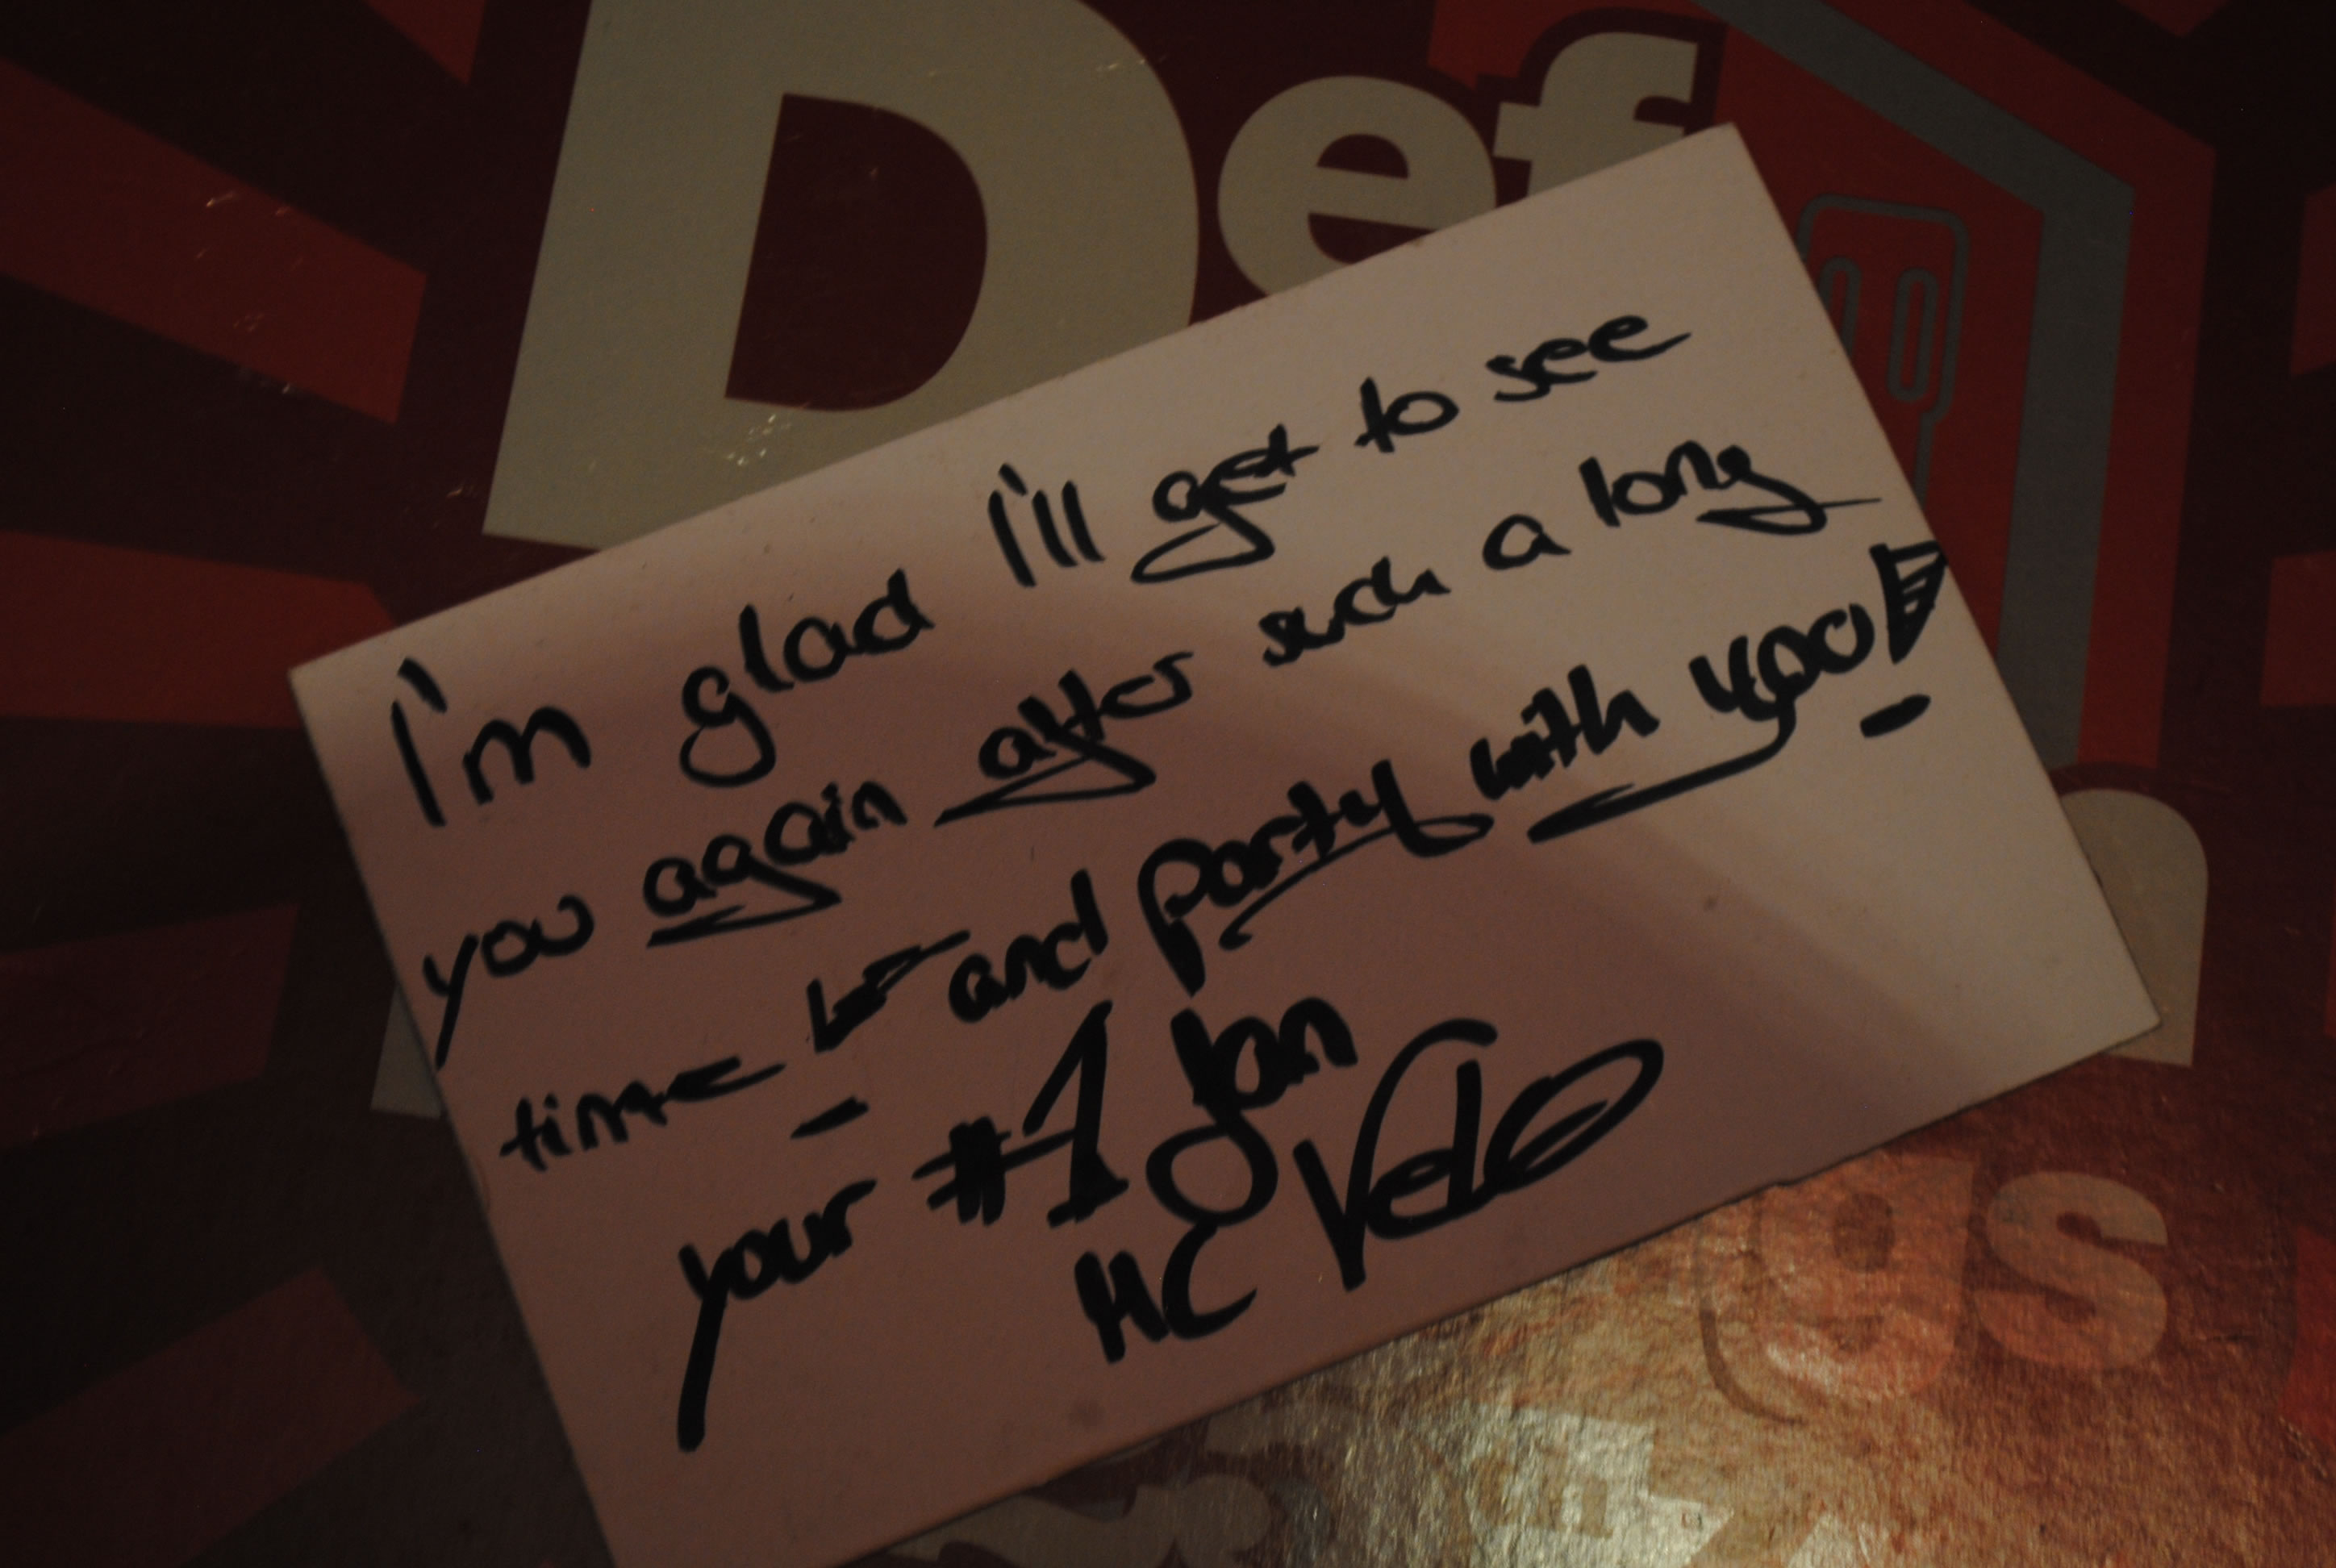 Def
I'm glad I'll get to see
you again after such a long
time! and party with you!
your #1 fan
MC Velo
gs